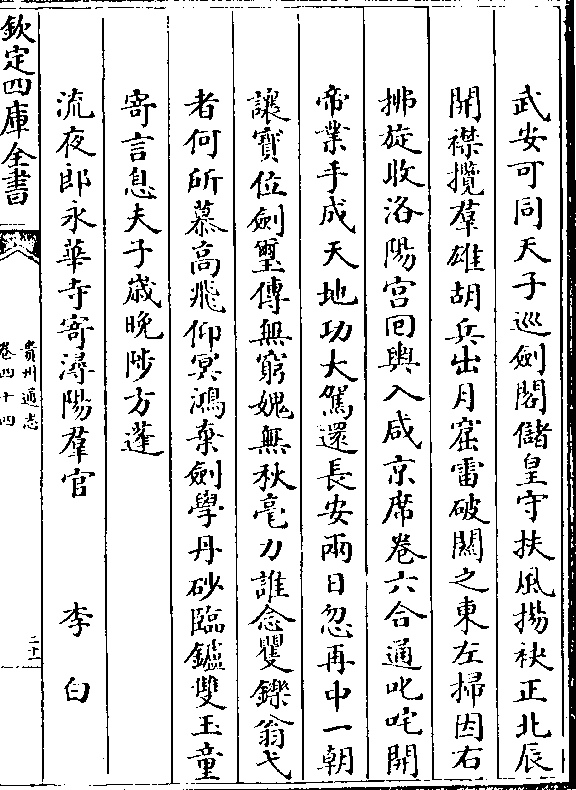 武安可同天子巡劍閣儲皇守扶風揚袂正北辰
開襟攬羣雄胡兵出月窟雷破關之東左掃因右
拂旋收洛陽宫回輿入咸京席卷六合通叱咤開
帝業手成天地功大駕還長安兩日忽再中一朝
讓寶位劍璽傳無窮媿無秋毫力誰念矍鑠翁弋
者何所慕高飛仰冥鴻棄劍學丹砂臨鑪雙玉童
寄言息夫子歲晚陟方蓬
流夜郎永華寺寄潯陽羣官 李白
欽定四庫全書
貴州通志
卷四十四
二十一